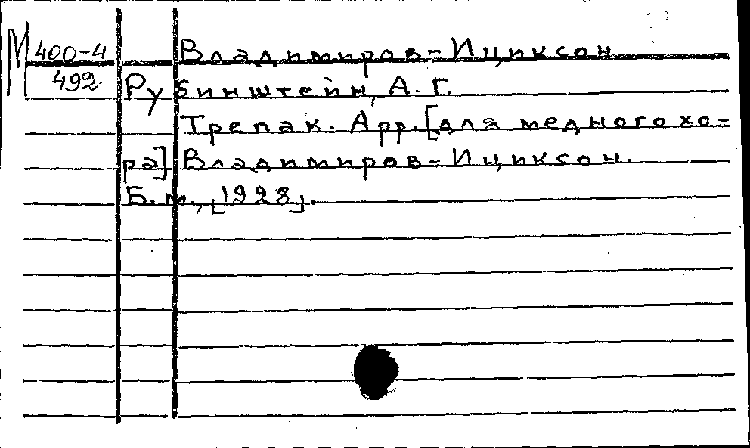 М 400-4 Владимиров-Ициксон
492 Рубинштейн, А. Г.
Трепак. Арр. [для медного хо-
ра] Владимиров-Ициксон.
Б.м., [1928].